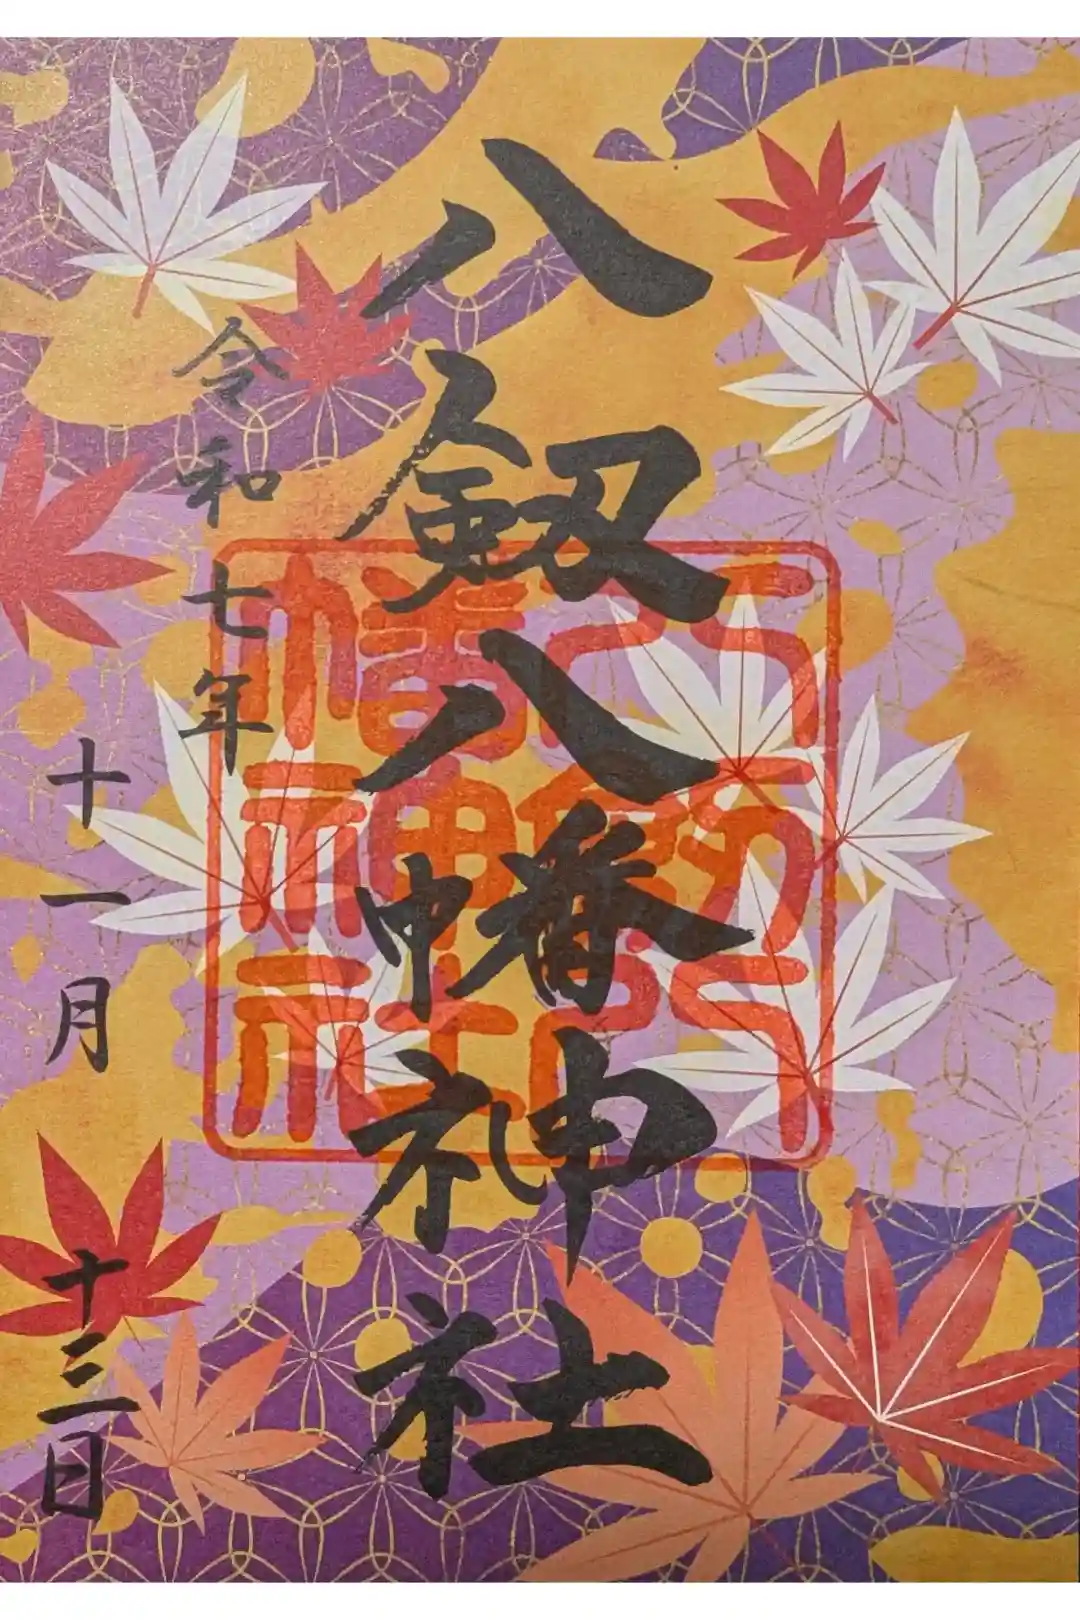 八釼八幡神社
令和七年
十一月
十三日
八剱八
幡神社